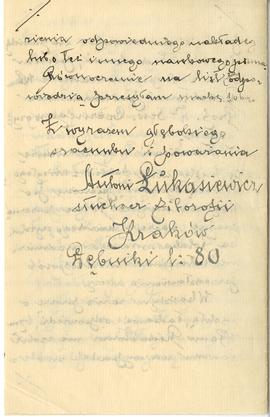 rzenia odpowiedniego nakładcę
lub też innego naukowego pisma
Równocześnie na list odpo-
wiedzia, przesyłam markę
Z wyrazem głębokiego
szacunku i poważania
Antoni Łukasiewicz
słuchacz Filozofii
Kraków
Dębniki l: 80